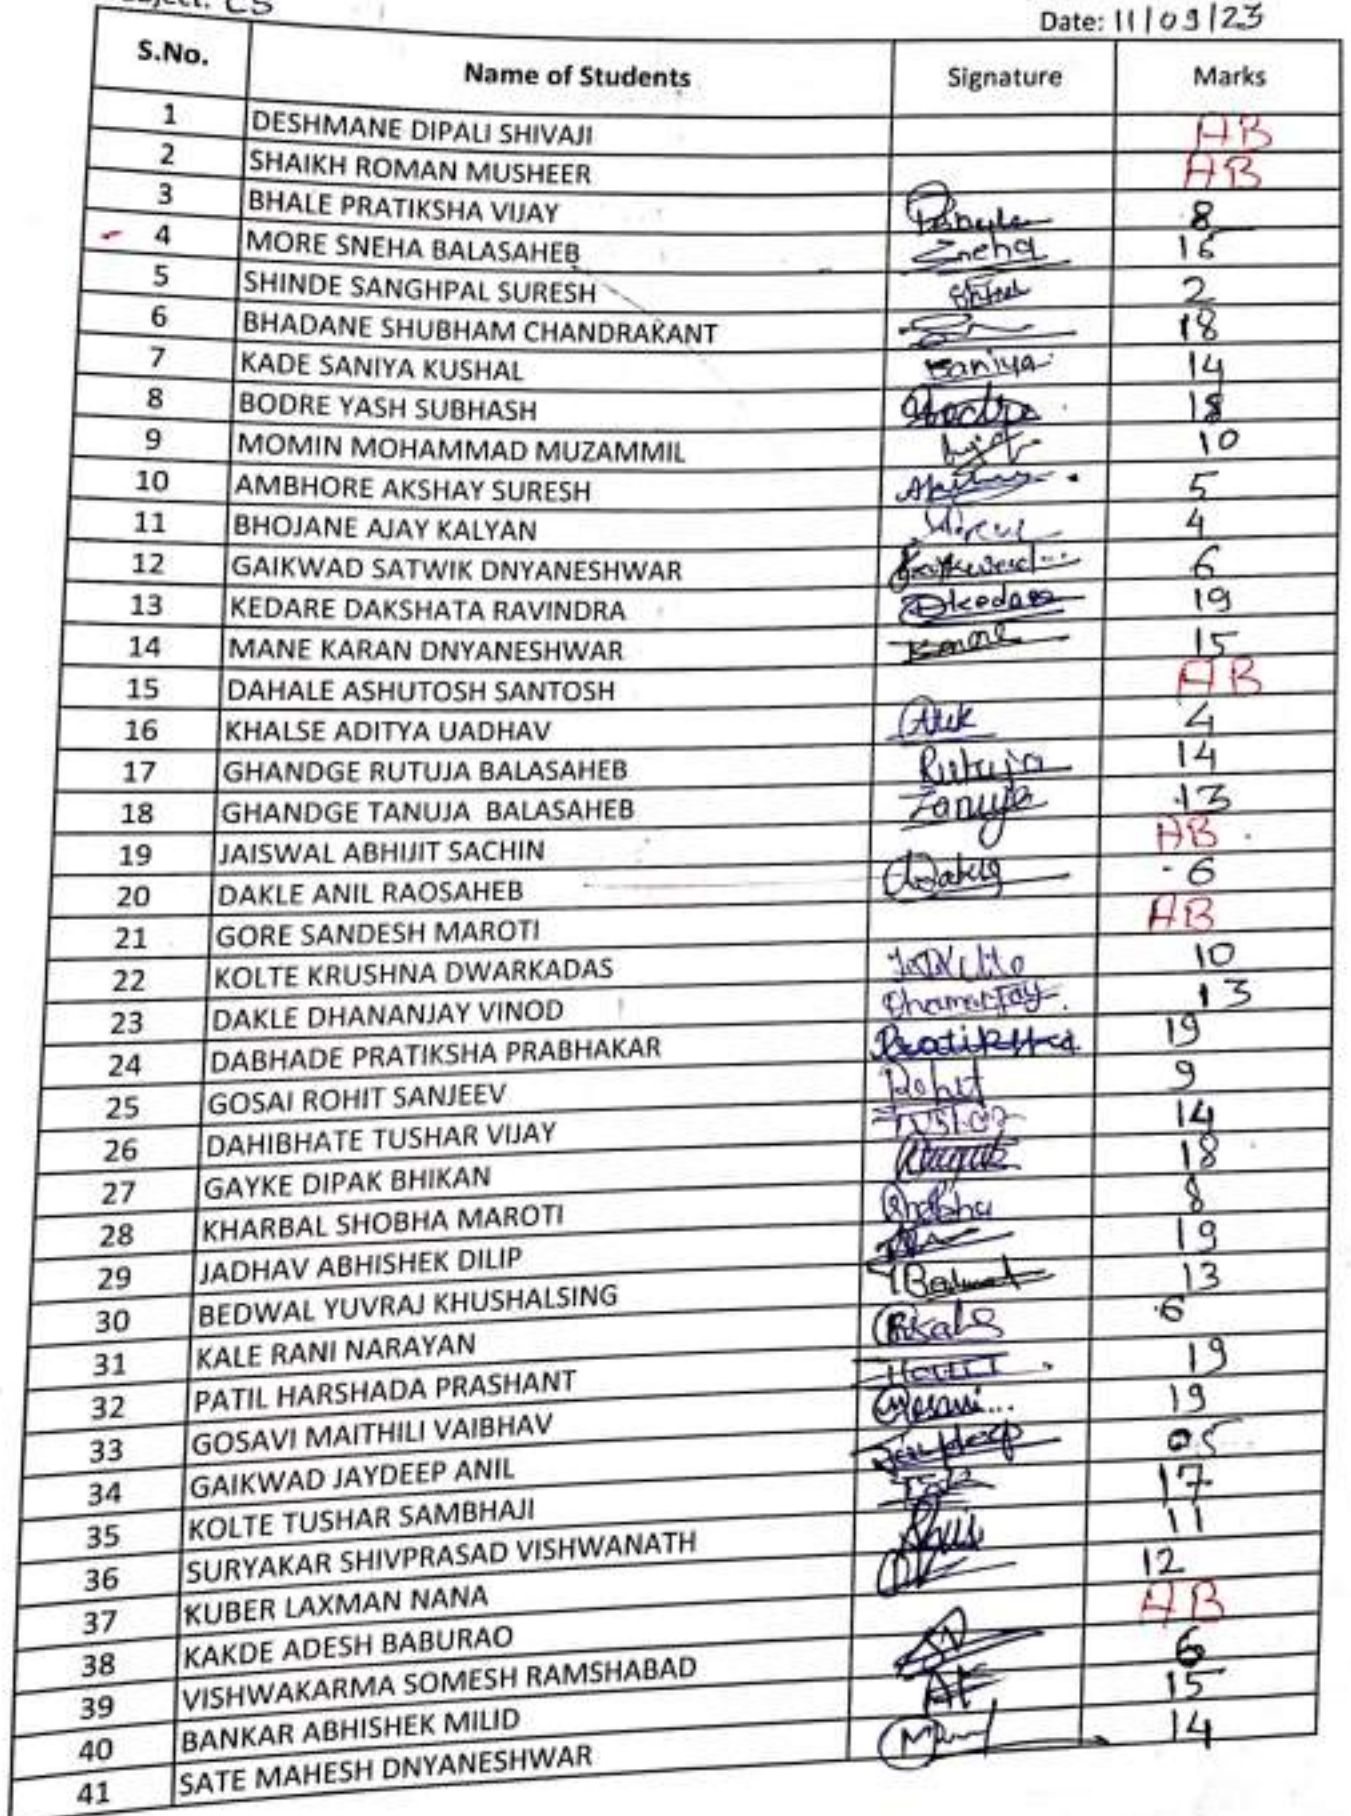 Subject: CS
Date: 11/09/23
S.No. Name of Students Signature Marks
1 DESHMANE DIPALI SHIVAJI AB
2 SHAIKH ROMAN MUSHEER AB
3 BHALE PRATIKSHA VIJAY 8
4 MORE SNEHA BALASAHEB Sneha 16
5 SHINDE SANGHPAL SURESH 2
6 BHADANE SHUBHAM CHANDRAKANT 18
7 KADE SANIYA KUSHAL Saniya 14
8 BODRE YASH SUBHASH 18
9 MOMIN MOHAMMAD MUZAMMIL 10
10 AMBHORE AKSHAY SURESH 5
11 BHOJANE AJAY KALYAN 4
12 GAIKWAD SATWIK DNYANESHWAR 6
13 KEDARE DAKSHATA RAVINDRA Dkedare 19
14 MANE KARAN DNYANESHWAR 15
15 DAHALE ASHUTOSH SANTOSH AB
16 KHALSE ADITYA UADHAV 4
17 GHANDGE RUTUJA BALASAHEB Rutuja 14
18 GHANDGE TANUJA BALASAHEB Tanuja 13
19 JAISWAL ABHIJIT SACHIN AB
20 DAKLE ANIL RAOSAHEB 6
21 GORE SANDESH MAROTI AB
22 KOLTE KRUSHNA DWARKADAS 10
23 DAKLE DHANANJAY VINOD Dhananjay 13
24 DABHADE PRATIKSHA PRABHAKAR Pratiksha 19
25 GOSAI ROHIT SANJEEV Rohit 9
26 DAHIBHATE TUSHAR VIJAY 14
27 GAYKE DIPAK BHIKAN 18
28 KHARBAL SHOBHA MAROTI Shobha 8
29 JADHAV ABHISHEK DILIP 19
30 BEDWAL YUVRAJ KHUSHALSING 13
31 KALE RANI NARAYAN Rkale 6
32 PATIL HARSHADA PRASHANT 19
33 GOSAVI MAITHILI VAIBHAV 19
34 GAIKWAD JAYDEEP ANIL Jaydeep 05
35 KOLTE TUSHAR SAMBHAJI 17
36 SURYAKAR SHIVPRASAD VISHWANATH 11
37 KUBER LAXMAN NANA 12
38 KAKDE ADESH BABURAO AB
39 VISHWAKARMA SOMESH RAMSHABAD 6
40 BANKAR ABHISHEK MILID 15
41 SATE MAHESH DNYANESHWAR 14